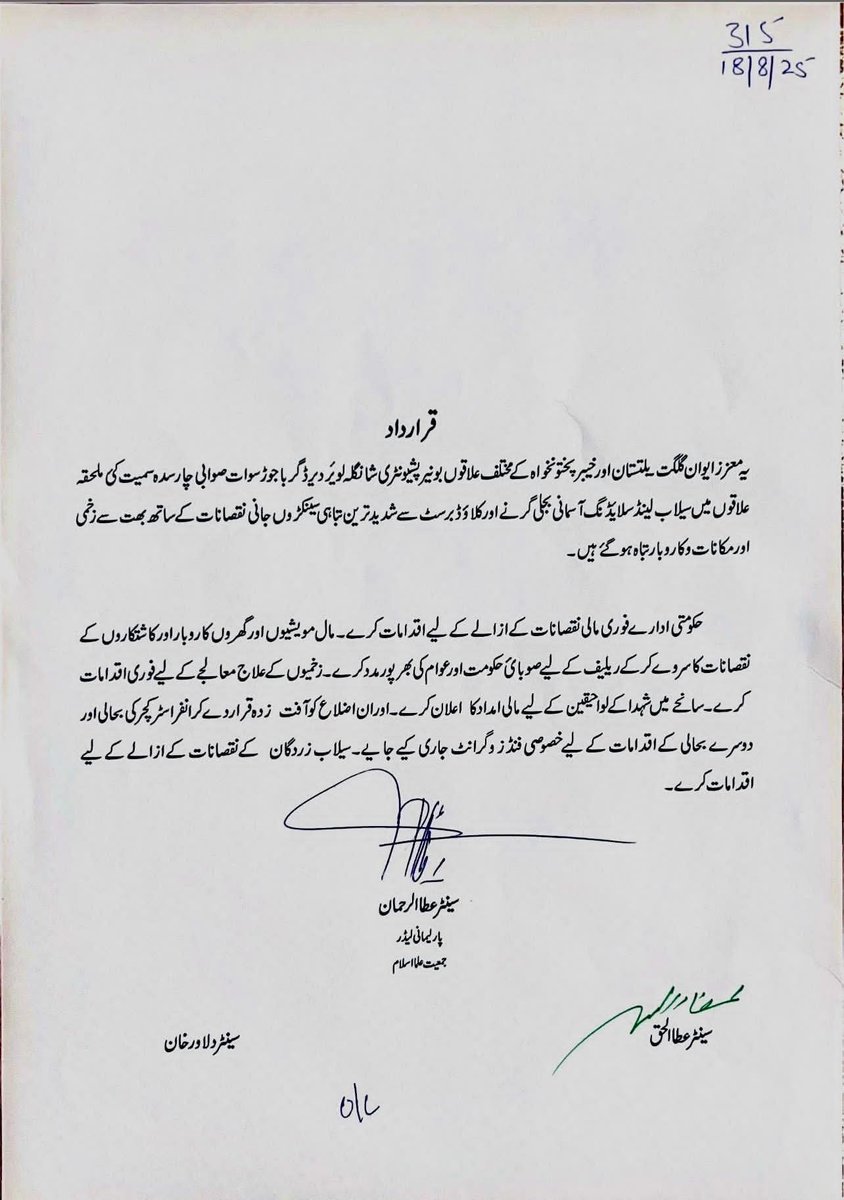 315
18/8/25
قرارداد
یہ معزز ایوان گلگت بلتستان اور خیبر پختونخواہ کے مختلف علاقوں بونیر پشیونٹری شانگلہ لوئر دیر ڈگر باجوڑ سوات صوابی چارسدہ سمیت کی ملحقہ
علاقوں میں سیلاب لینڈ سلایڈنگ آسمانی بجلی گرنے اور کلاؤڈ برسٹ سے شدید ترین تباہی سینکڑوں جانی نقصانات کے ساتھ بھت سے زخمی
اور مکانات و کاروبار تباہ ہو گئے ہیں۔
حکومتی ادارے فوری مالی نقصانات کے ازالے کے لیے اقدامات کرے۔ مال مویشیوں اور گھروں کاروبار اور کاشتکاروں کے
نقصانات کا سروے کر کے ریلیف کے لیے صوبائ حکومت اور عوام کی بھر پور مدد کرے۔ زخمیوں کے علاج معالجے کے لیے فوری اقدامات
کرے۔ سانحے میں شہدا کے لواحیقین کے لیے مالی امداد کا اعلان کرے۔ اور ان اضلاع کو آفت زدہ قرار دے کر انفراسٹرکچر کی بحالی اور
دوسرے بحالی کے اقدامات کے لیے خصوصی فنڈز و گرانٹ جاری کیے جایے۔ سیلاب زردگان کے نقصانات کے ازالے کے لیے
اقدامات کرے۔
سینٹر عطاالرحمان
پارلیمانی لیڈر
جمعیت علما اسلام
سینٹر عطاالحق
سینٹر دلاور خان
O/C